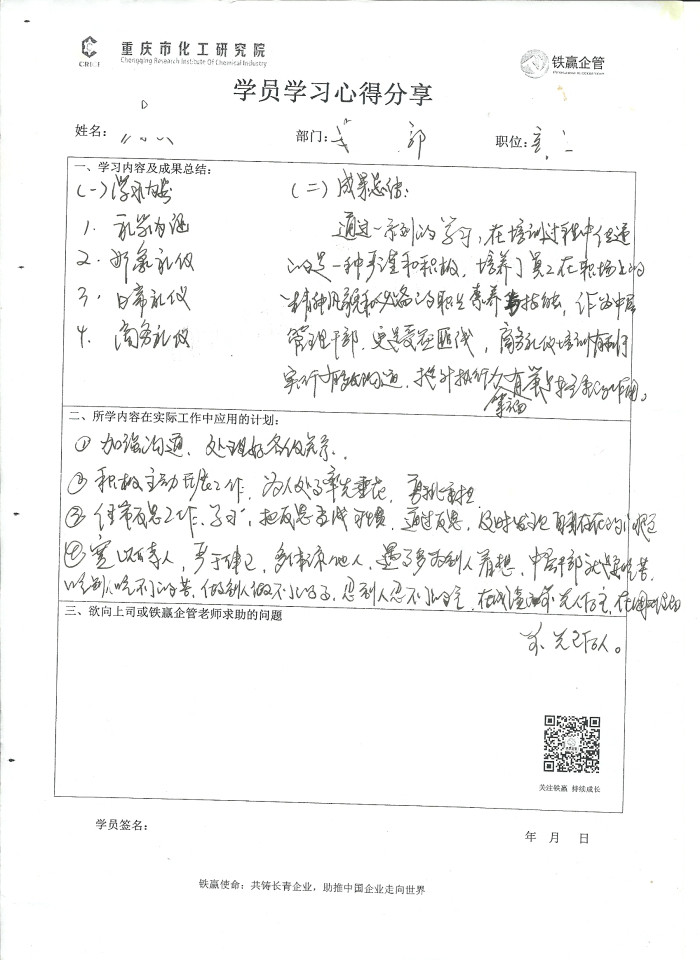 重庆市化工研究院
CRICI Chongqing Research Institute Of Chemical Industry
铁赢企管
学员学习心得分享
姓名： 部门： 部 职位：
一、学习内容及成果总结：
(一)学习内容
1. 礼学内涵
2. 形象礼仪
3. 日常礼仪
4. 商务礼仪
(二)成果总结：
通过一系列的学习，在培训过程中传递
的是一种严谨和积极，培养了员工在职场上的
精神风貌和必备的职业素养与技能，作为中层
管理干部，更是受益匪浅，商务礼仪培训有利于
实行有效沟通，提升执行力有着
二、所学内容在实际工作中应用的计划：
① 加强沟通，处理好各级关系。
② 积极主动开展工作，为人处事率先垂范，勇挑重担
③ 经常反思工作、学习，把反思当成习惯，通过反思，及时发现自身存在的问题
④ 宽以待人，严于律己，多体谅他人，遇事多为别人着想，中层干部就是要吃苦，
吃别人吃不了的苦，做别人做不了的事，忍别人忍不了的
三、欲向上司或铁赢企管老师求助的问题
关注铁赢 持续成长
学员签名：
年 月 日
铁赢使命：共铸长青企业，助推中国企业走向世界